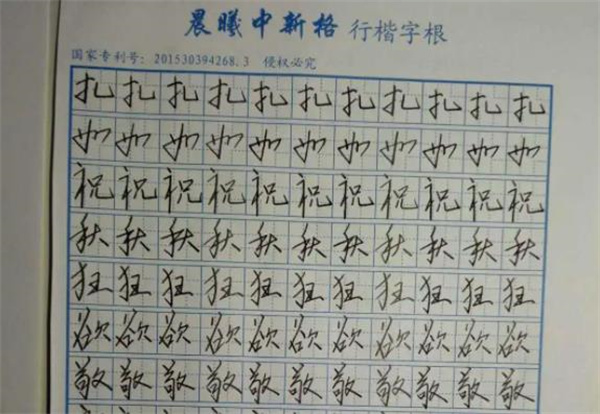 晨曦中新格 行楷字根
国家专利号：201530394268.3 侵权必究
扎扎扎扎扎扎扎扎扎扎扎
如如如如如如如如如如如
祝祝祝祝祝祝祝祝祝祝祝
秋秋秋秋秋秋秋秋秋秋秋
狂狂狂狂狂狂狂狂狂狂狂
欲欲欲欲欲欲欲欲欲欲欲
敬敬敬敬敬敬敬敬敬敬敬